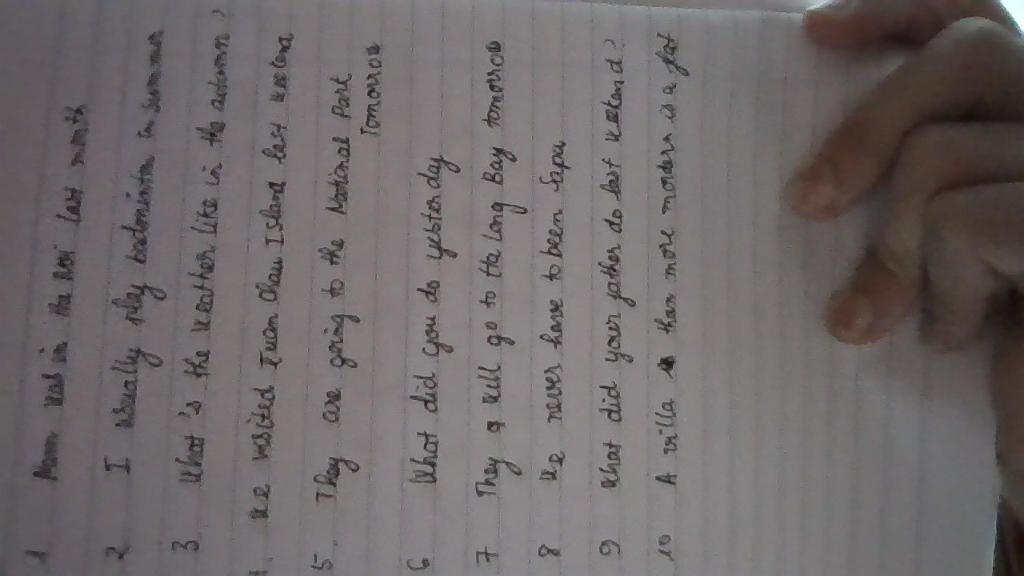 1 Mum was in Ha Noi last month
2 I usually play badminton in summer
3 What's the weather like in the autumn?
We visited Tuan Chau Island last weekend
5 They are going to the National Park
Tomorrow
6 What did you do yesterday
7 They will go to Ha Long Bay tomorrow
8 We never have to been Sapa
9 What did your father do last weekend?
10 A villa than more modern is a flat